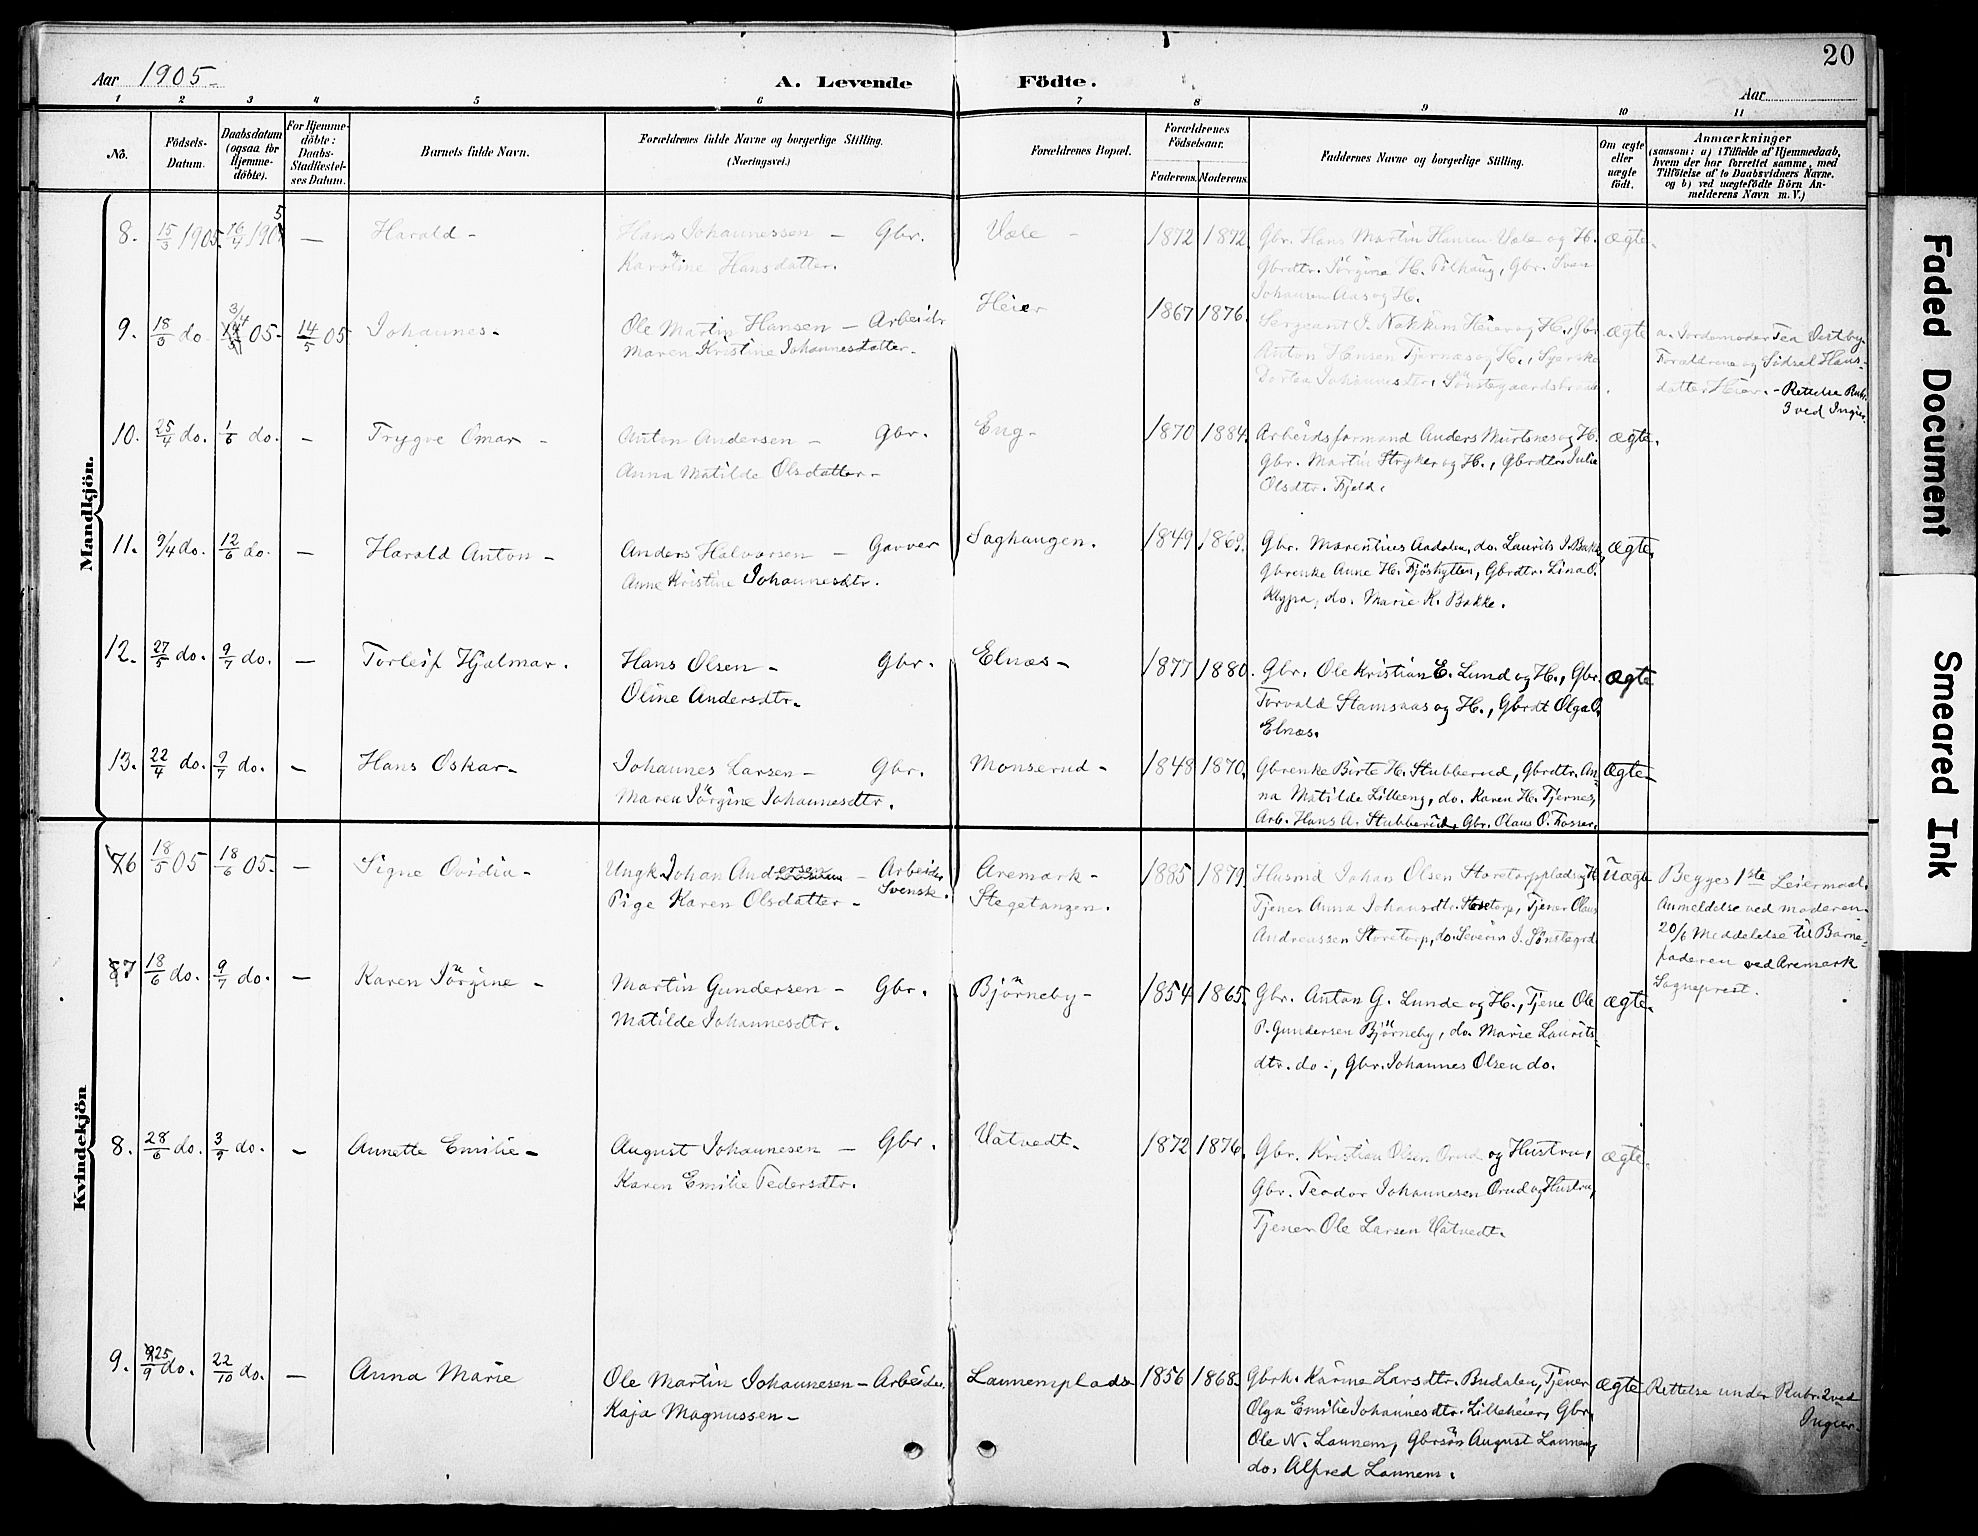 20
Aar 1905
A. Levende Födte.
Aar
1 2 3 4 5 6 7 8 9 10 11
No.
Födsels-Datum.
Daabsdatum (ogsaa for Hjemme-döbte).
For Hjemme-döbte: Daabs-Stadfæstel-ses Datum.
Barnets fulde Navn.
Forældrenes fulde Navne og borgerlige Stilling. (Næringsvei.)
Forældrenes Bopæl.
Forældrenes Födselsaar.
Faderens. Moderens.
Faddernes Navne og borgerlige Stilling.
Om ægte eller uægte födt.
Anmærkninger
(saasom: a) i Tilfælde af Hjemmedaab,
hvem der har forrettet samme, med
Tilföielse af to Daabsvidners Navne.
og b) ved uægtefödte Börn An-
melderens Navn m. V.)
Mandkjön.
8. 15/3 1905. 16/4 1905 — Harald - Hans Johannessen — Gbr. Vale - 1872 1872. Gbr. Hans Martin Hansen Vale og H. ægte.
Karoline Hansdatter. Gbrdtr. Jörgine H. Tilhaug, Gbr. Sven
Johansen Aas og H.
9. 18/3 do. 3/4 05- 14/5 05 Johannes- Ole Martin Hansen — Arbeider Heier 1867 1876. Sergeant J. Nakkim Heier og H., Gbr. ægte a. Jordemoder Tea Vestby.
Maren Kristine Johannesdatter. Anton Hansen Tjernæs og H., Syerske Forældrene og Sidsel Hans-
Dortea Johannesdtr. Sönstegaardsbraaten. datter Heier. - Rettelse Rubr.
3 ved Ingier.
10. 25/4 do. 1/6 do. - Trygve Omar - Anton Andersen — Gbr. Eng- 1870 1884. Arbeidsformand Anders Murtnes og H. ægte.
Anna Matilde Olsdatter - Gbr. Martin Stryker og H., Gbrdtr. Julie
Olsdtr. Fjeld.
11. 9/4 do. 12/6 do. — Harald Anton - Anders Halvorsen — Garver Saghaugen. 1849 1869. Gbr. Marentius Aadalen, do. Laurits J. Bakke, ægte.
Anne Kristine Johannesdtr. Gbrenke Anne H. Fjöshytten, Gbrdtr. Lina O.
Klypa, do. Marie K. Bakke.
12. 27/5 do. 9/7 do. — Torleif Hjalmar. Hans Olsen - Gbr. Elnæs- 1877 1880. Gbr. Ole Kristian E. Lund og H., Gbr. ægte
Oline Andersdtr. Torvald Stamsaas og H., Gbrdt Olga O.
Elnæs.
13. 22/4 do. 9/7 do. - Hans Oskar- Johannes Larsen - Gbr. Monserud - 1848 1870. Gbrenke Birte H. Stubberud, Gbrdtr. An- Ægte-
Maren Jörgine Johannesdtr. na Matilde Lilleeng, do. Karen H. Tjernes,
Arb. Hans A. Stubberud, Gbr. Olaus O. Fosser.
Kvindekjön
6 18/5 05 18/6 05- — Signe Ovidia- Ungk. Johan Andersen — Arbeider Svensk. Aremark- 1885 1879. Husmd Johan Olsen Storetorpplads og H. Uægte Begges 1ste Leiermaal.
Pige Karen Olsdatter - Stegetangen. Tjener Anna Johansdtr. Storetorp, Tjener Olaus Anmeldelse ved moderen.
Andreassen Storetorp, do. Severin J. Sönstegrd. 20/6 Meddelelse til Barne-
faderen ved Aremark
Sogneprest.
7 18/6 do. 9/7 do. — Karen Jörgine - Martin Gundersen - Gbr. Björneby- 1854 1865. Gbr. Anton G. Lunde og H., Tjene Ole ægte.
Matilde Johannesdtr. P. Gundersen Björneby, do. Marie Laurits-
dtr. do., Gbr. Johannes Olsen do.
8. 28/6 do. 3/9 do. - Annette Emilie- August Johannesen — Gbr. Vatvedt- 1872 1876. Gbr. Kristian Olsen Orud og Hustru, ægte.
Karen Emilie Pedersdtr. Gbr. Teodor Johannesen Orud og Hustru,
Tjener Ole Larsen Vatvedt.
9. 25/9 do. 22/10 do. — Anna Marie Ole Martin Johannesen - Arbeider. Launemsplads 1856 1868. Gbrk. Karine Larsdtr. Budalen, Tjener ægte Rettelse under Rubr. 2 ved
Kaja Magnussen - Olga Emilie Johannesdtr. Lilleheier, Gbr. Ingier.
Ole N. Launem, Gbrsön August Launem,
do. Alfred Launem.
Faded Document
Smeared Ink